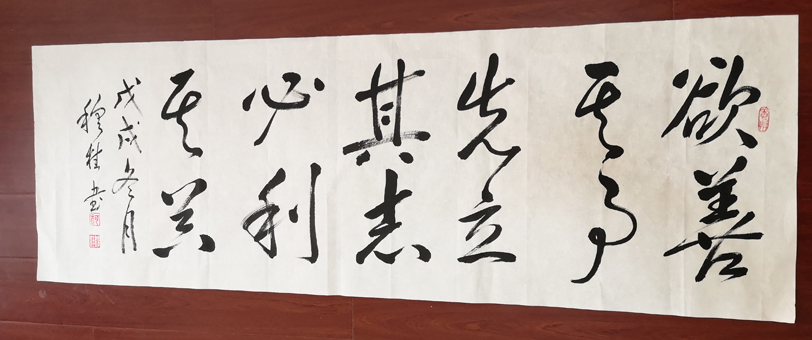 欲善
其事
先立
其志
必利
其器
戊戌冬月
穆桂书